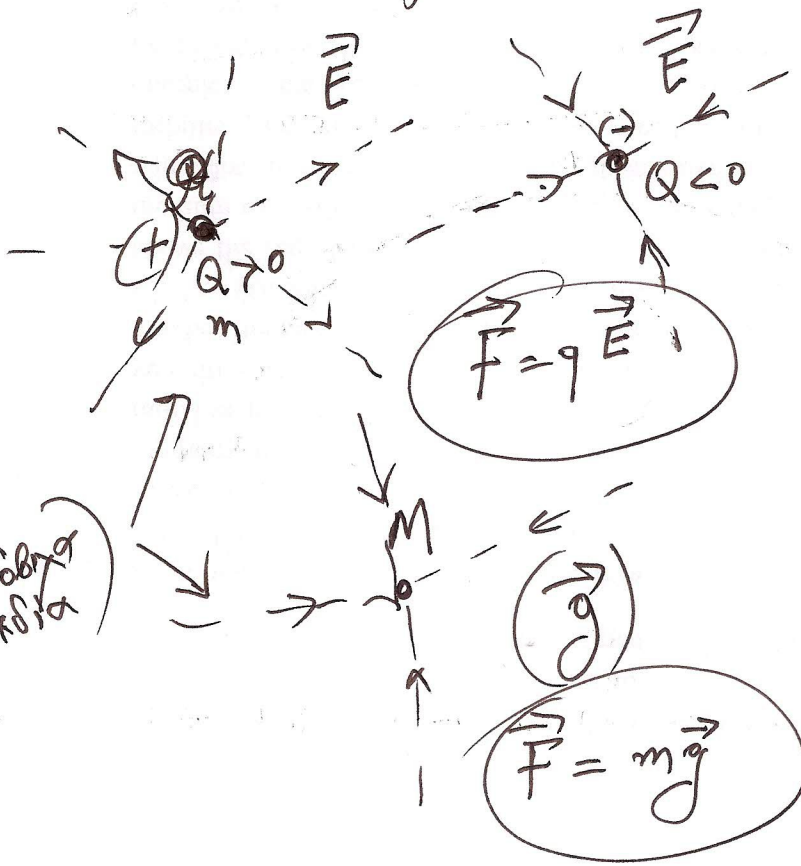 E⃗
E⃗
(-)
Q<0
(+)
Q>0
m
F⃗ = qE⃗
M
g⃗
F⃗ = mg⃗